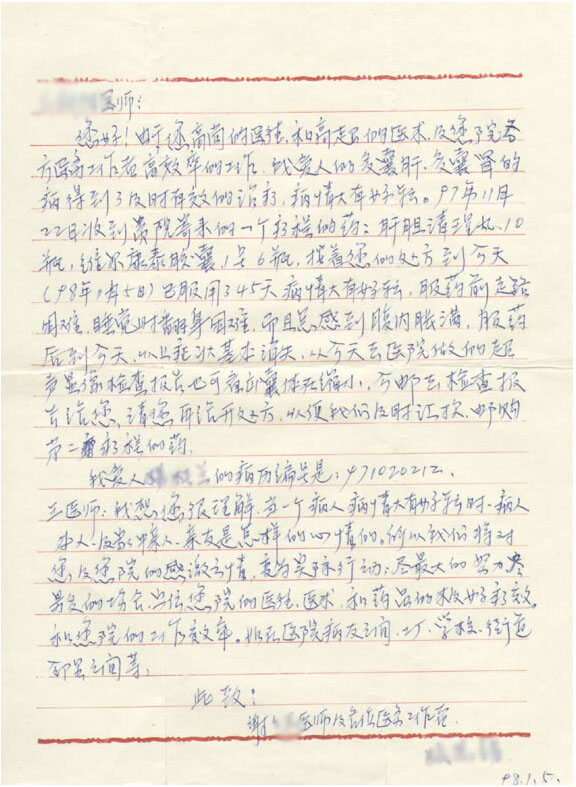 医师：
您好！由于您高尚的医德，和高超的医术，及您院各
方医务工作者高效率的工作，我爱人的多囊肝、多囊肾的
病得到了及时有效的治疗，病情大有好转。97年11月
22日收到贵院寄来的一个疗程的药：肝胆清理丸，10
瓶，维尔康泰胶囊，1号6瓶，按着您们的处方到今天
(98年1月5日)已服用345天病情大有好转，服药前走路
困难，睡觉时翻身困难，而且总感到腹内胀满，服药
后到今天，以上症状基本消失，从今天去医院做的超
声显像检查报告也可看到囊体在缩小，今邮去检查报
告给您，请您再给开处方，以便我们及时汇款，邮购
第二疗程的药。
我爱人的病历编号是：971020212.
王医师：我想您很理解，当一个病人病情大有好转时，病人
本人、及家人、亲友是怎样的心情的。所以我们将对
您，及您院的感激之情，变为实际行动：尽最大的努力
的场合，宣传您院的医德，医术，和药品的极好疗效，
和您院的工作效率。如在医院病友之间、工厂、学校、
邻居之间等，
此致：
谢医师及各位医务工作者.
98.1.5.